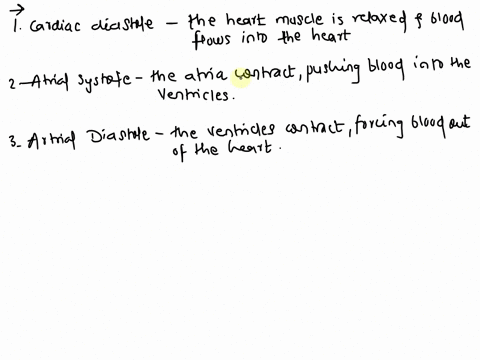 →
1. Cardiac diastole – the heart muscle is relaxed & blood
flows into the heart
2 – Atrial Systole – the atria contract, pushing blood into the
ventricles.
3 – Artrial Diastole – the ventricles contract, forcing blood out
of the heart.